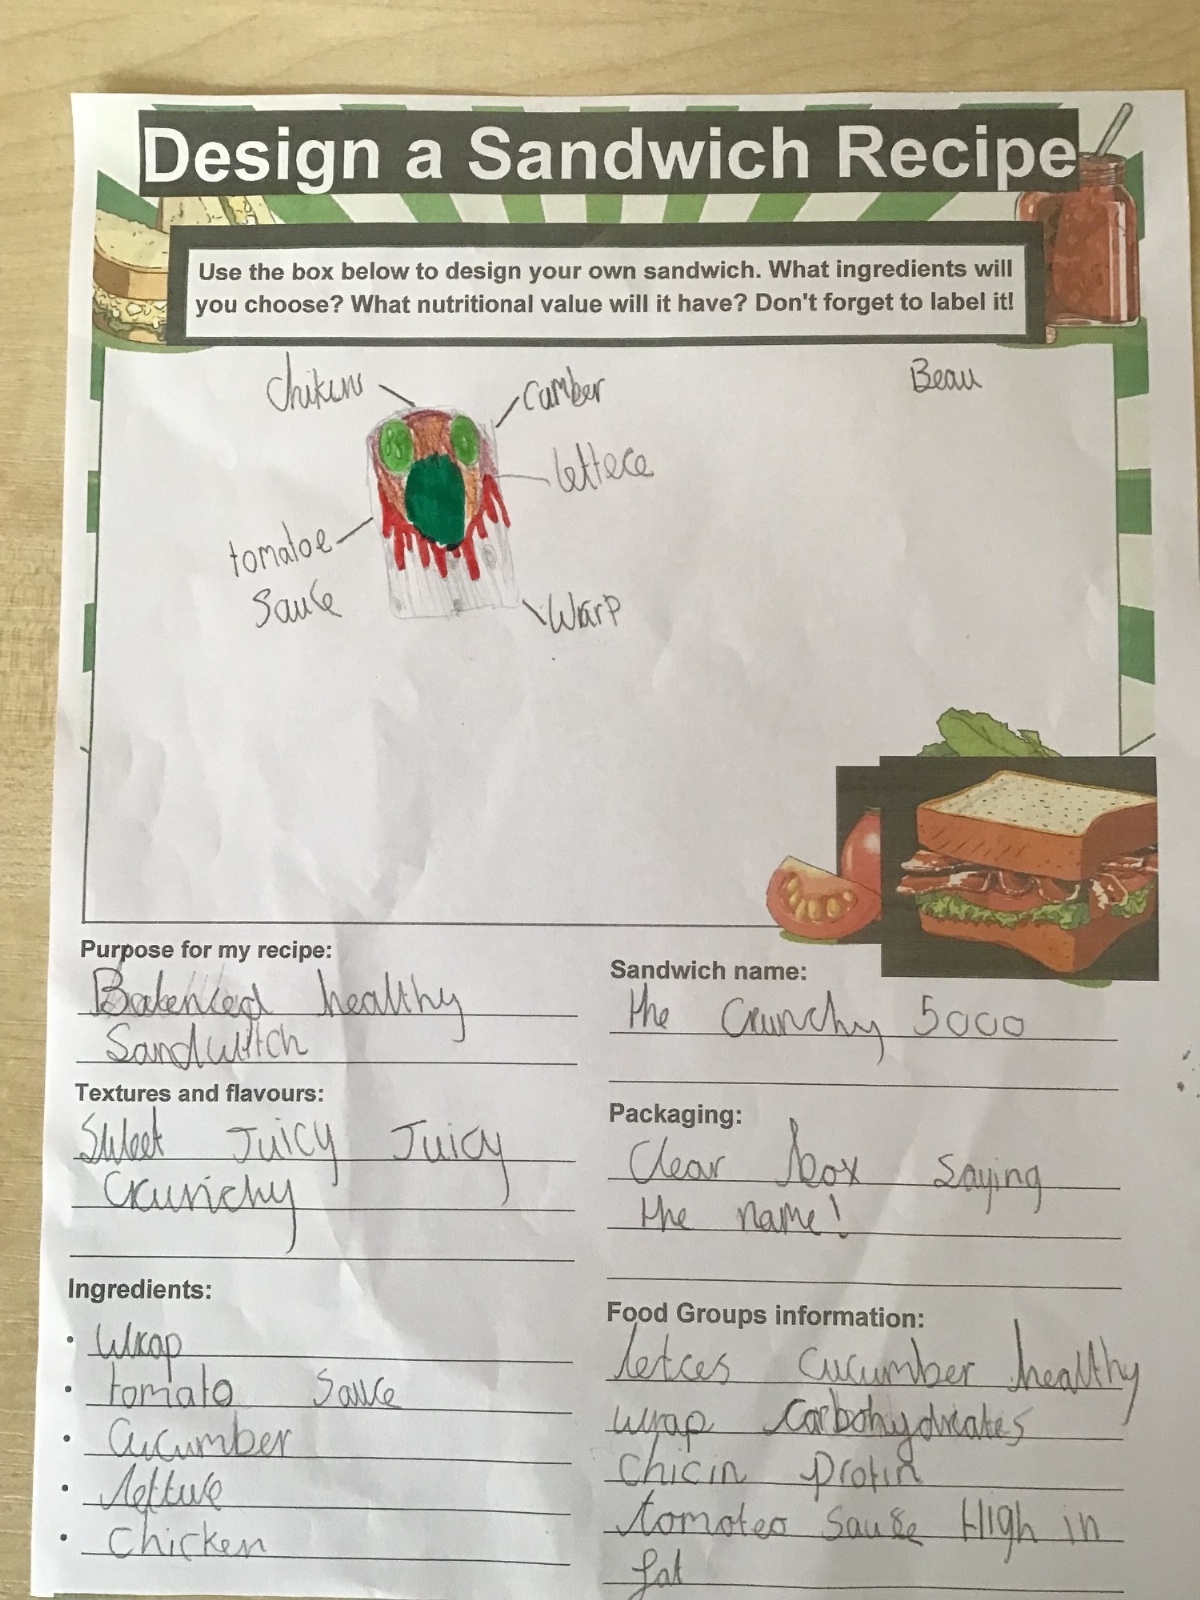 Design a Sandwich Recipe
Use the box below to design your own sandwich. What ingredients will
you choose? What nutritional value will it have? Don't forget to label it!
Beau
chikin
cumber
lettece
tomatoe
sauce
warp
Purpose for my recipe:
Balenced healthy
Sandwitch
Textures and flavours:
Sweet Juicy Juicy
Crunchy
Ingredients:
• Wrap
• tomato sauce
• Cucumber
• lettuce
• Chicken
Sandwich name:
the Crunchy 5000
Packaging:
Clear box saying
the name!
Food Groups information:
letces cucumber healthy
wrap carbohydrates
chicin protin
tomateo sause High in
fat